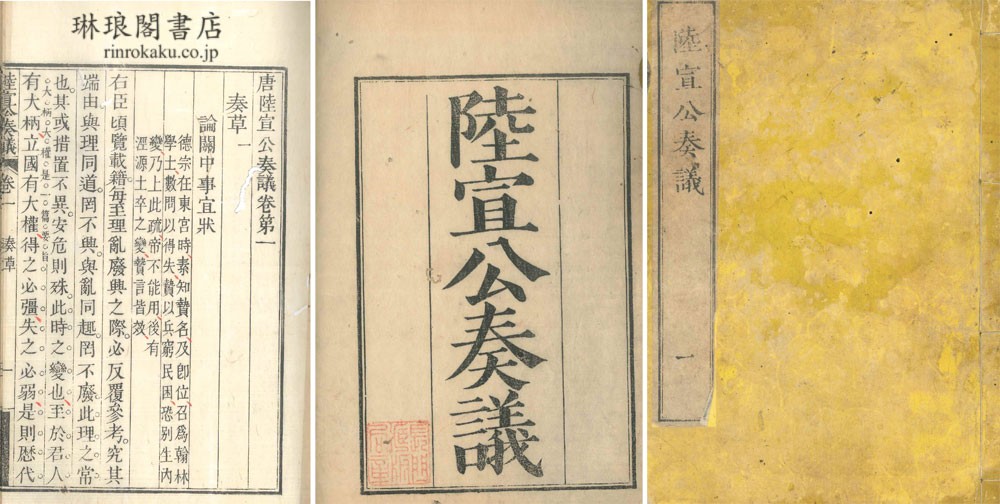 琳琅閣書店
rinrokaku.co.jp
唐陸宣公奏議卷第一
奏草一
論關中事宜狀
德宗在東宮時素知贄名及卽位召爲翰林
學士數問以得失贄以兵窮民困恐别生内
變乃上此疏帝不能用後有
涇源士卒之變贄言皆效
右臣頃覽載籍每至理亂廢興之際必反覆參考究其
端由與理同道罔不興與亂同趣罔不廢此理之常
也其或措置不異安危則殊此時之變也至於君人
大柄大權是一篇要旨
有大柄立國有大權得之必彊失之必弱是則歷代
陸宣公奏議 卷一 奏草 一
陸宣公奏議
陸宣公奏議 一